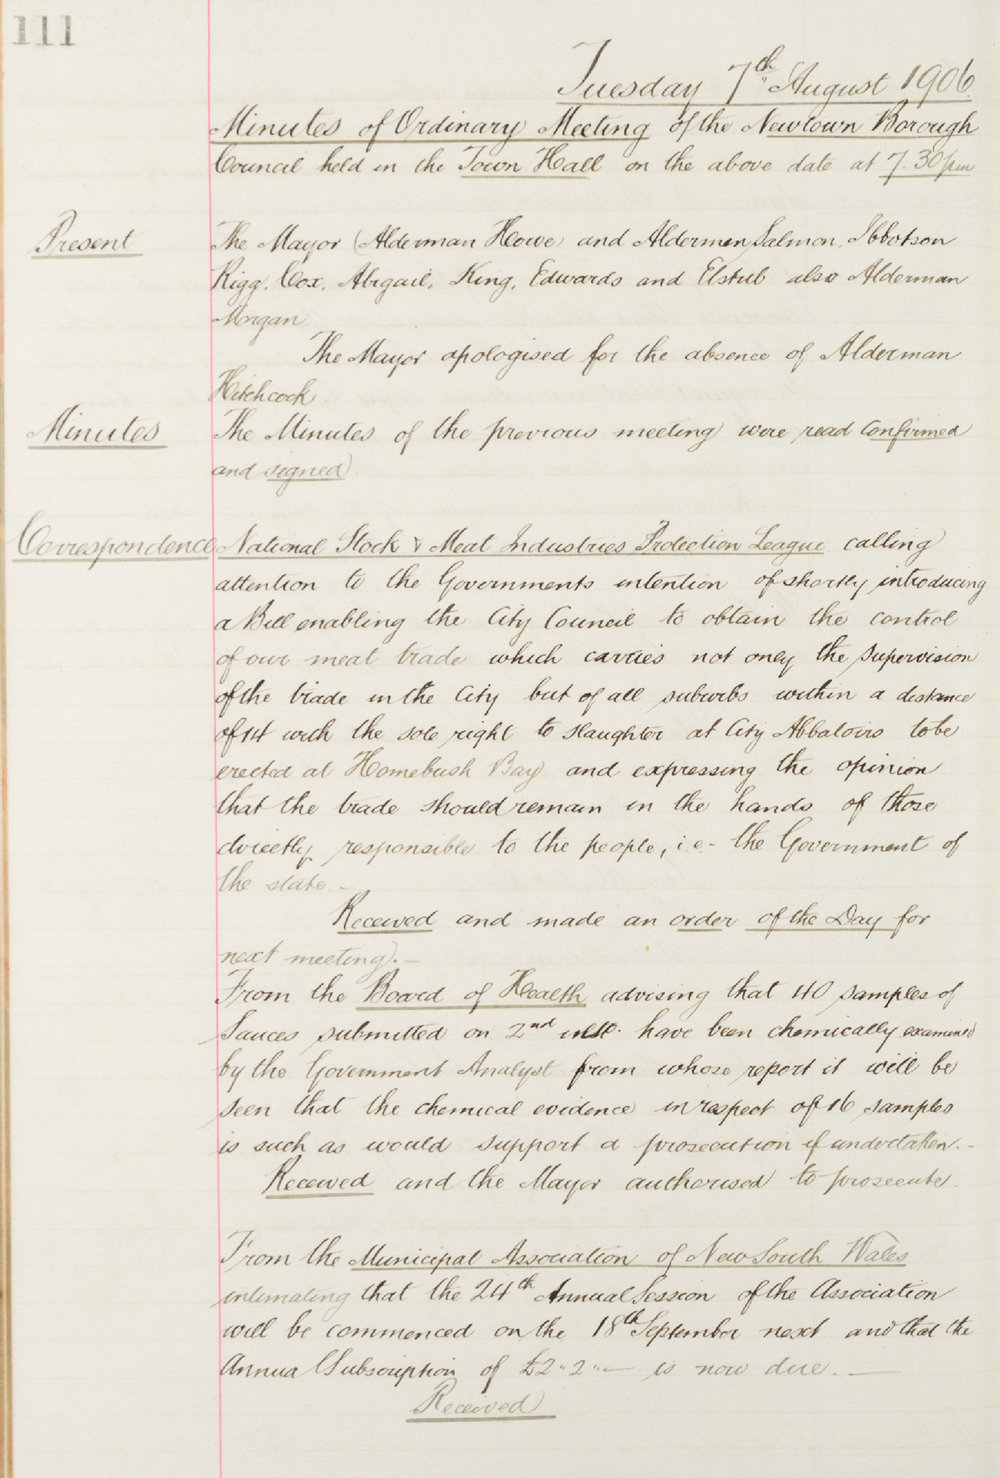 111
Tuesday 7th August 1906
Minutes of Ordinary Meeting of the Newtown Borough
Council held in the Town Hall on the above date at 7.30 pm
Present
The Mayor (Alderman Howe) and Aldermen Salmon, Ibbotson
Rigg, Cox, Abigail, King, Edwards and Elstub also Alderman
Morgan
The Mayor apologised for the absence of Alderman
Hitchcock.
Minutes
The Minutes of the previous meeting were read confirmed
and signed.
Correspondence
National Stock & Meat Industries Protection League calling
attention to the Governments intention of shortly introducing
a Bill enabling the City Council to obtain the control
of our meat trade which carries not only the supervision
of the trade in the City but of all suburbs within a distance
of 14 with the sole right to slaughter at City Abbatoirs to be
erected at Homebush Bay and expressing the opinion
that the trade should remain in the hands of those
directly responsible to the people, i.e- the Government of
the state. -
Received and made an order of the Day for
next meeting. -
From the Board of Health advising that 40 samples of
Sauces submitted on 2nd ulto. have been chemically examined
by the Government Analyst from whose report it will be
seen that the chemical evidence in respect of 16 samples
is such as would support a prosecution if undertaken. -
Received and the Mayor authorised to prosecute.
From the Municipal Association of New South Wales
intimating that the 24th Annual Session of the Association
will be commenced on the 18th September next and that the
Annual Subscription of £2"2"- is now due. -
Received